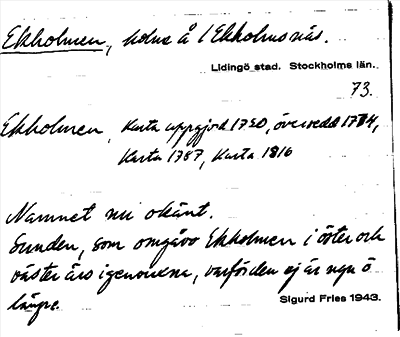 Ekholmen, holme å l Ekholmsnäs.
Lidingö stad. Stockholms län.
73.
Ekholmen, Karta uppgjord 1750, översedd 1774,
Karta 1787, Karta 1816
Namnet nu okänt.
Sunden, som omgåvo Ekholmen i öster och
väster äro igenvuxna, varför den ej är ngn ö
längre.
Sigurd Fries 1943.